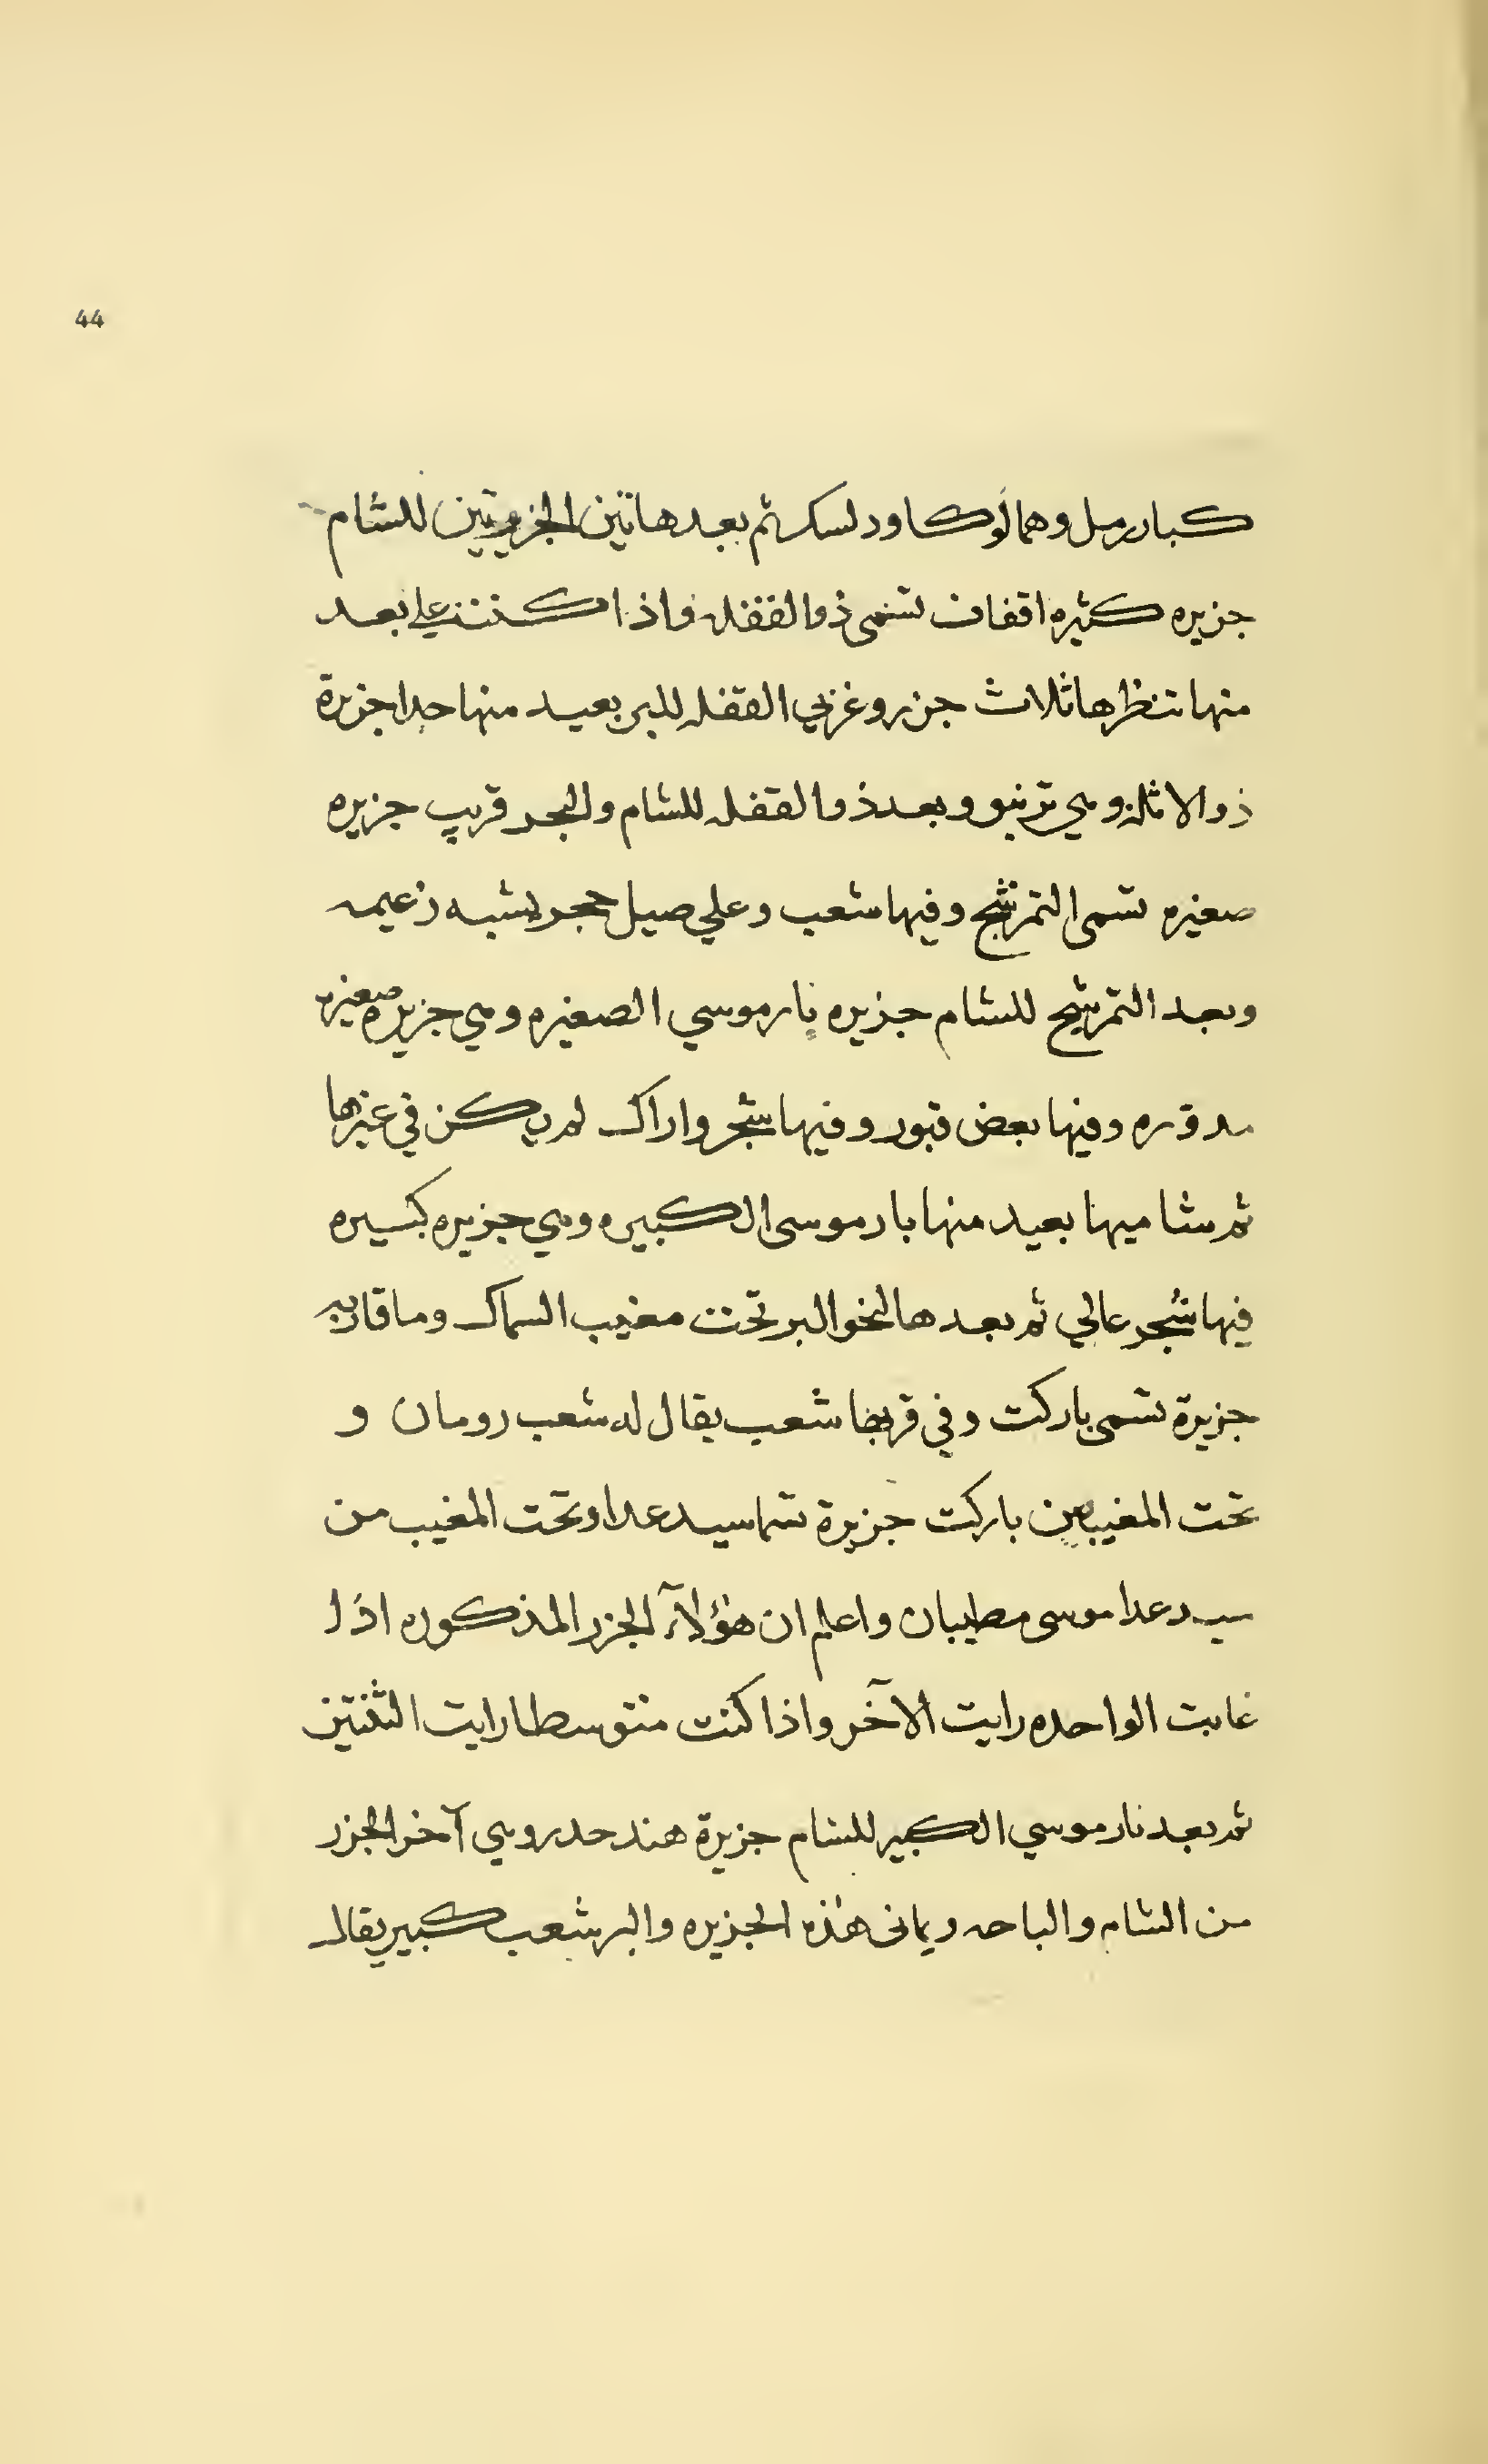 44
كبار رمل وهما لوكا ودلسكر ثم بعد هاتين الجزيرتين للشام
جزيره كثيره اقفات تسمى ذو القفله واذا كنت علي بعد
منها تنظرها ثلاث جزر وغربي القفله للبر بعيد منها حدا جزيرة
ذو الاثله وهي ترنبو وبعد ذو القفله للشام والبحر قريب جزيره
صغيره تسمى التمرشج وفيها شعب وعلي صيل حجر يشبه زعيمه
وبعد التمرشج للشام جزيره بارموسي الصغيره وهي جزيره صغيره
مدوره وفيها بعض قبور وفيها شجر واراك لم يكن في غيرها
ثم شاميها بعيد منها بارموسى الكبيره وهي جزيره كبيره
فيها شجر عالي ثم بعدها لنحو البر تحت مغيب السماك وما قاربه
جزيرة تسمى باركت وفي قربها شعب يقال له شعب رومان و
تحت المغيب من باركت جزيرة تسما سيد عدا وتحت المغيب من
سيد عدا موسى مطيبان واعلم ان هؤلآء الجزر المذكوره اذا
غابت الواحده رايت الآخر واذا كنت متوسطا رايت الثنتين
ثم بعد بارموسي الكبير للشام جزيرة هند حدر وهي آخر الجزر
من الشام والباحه ويمانى هذه الجزيره والبر شعب كبير يقال